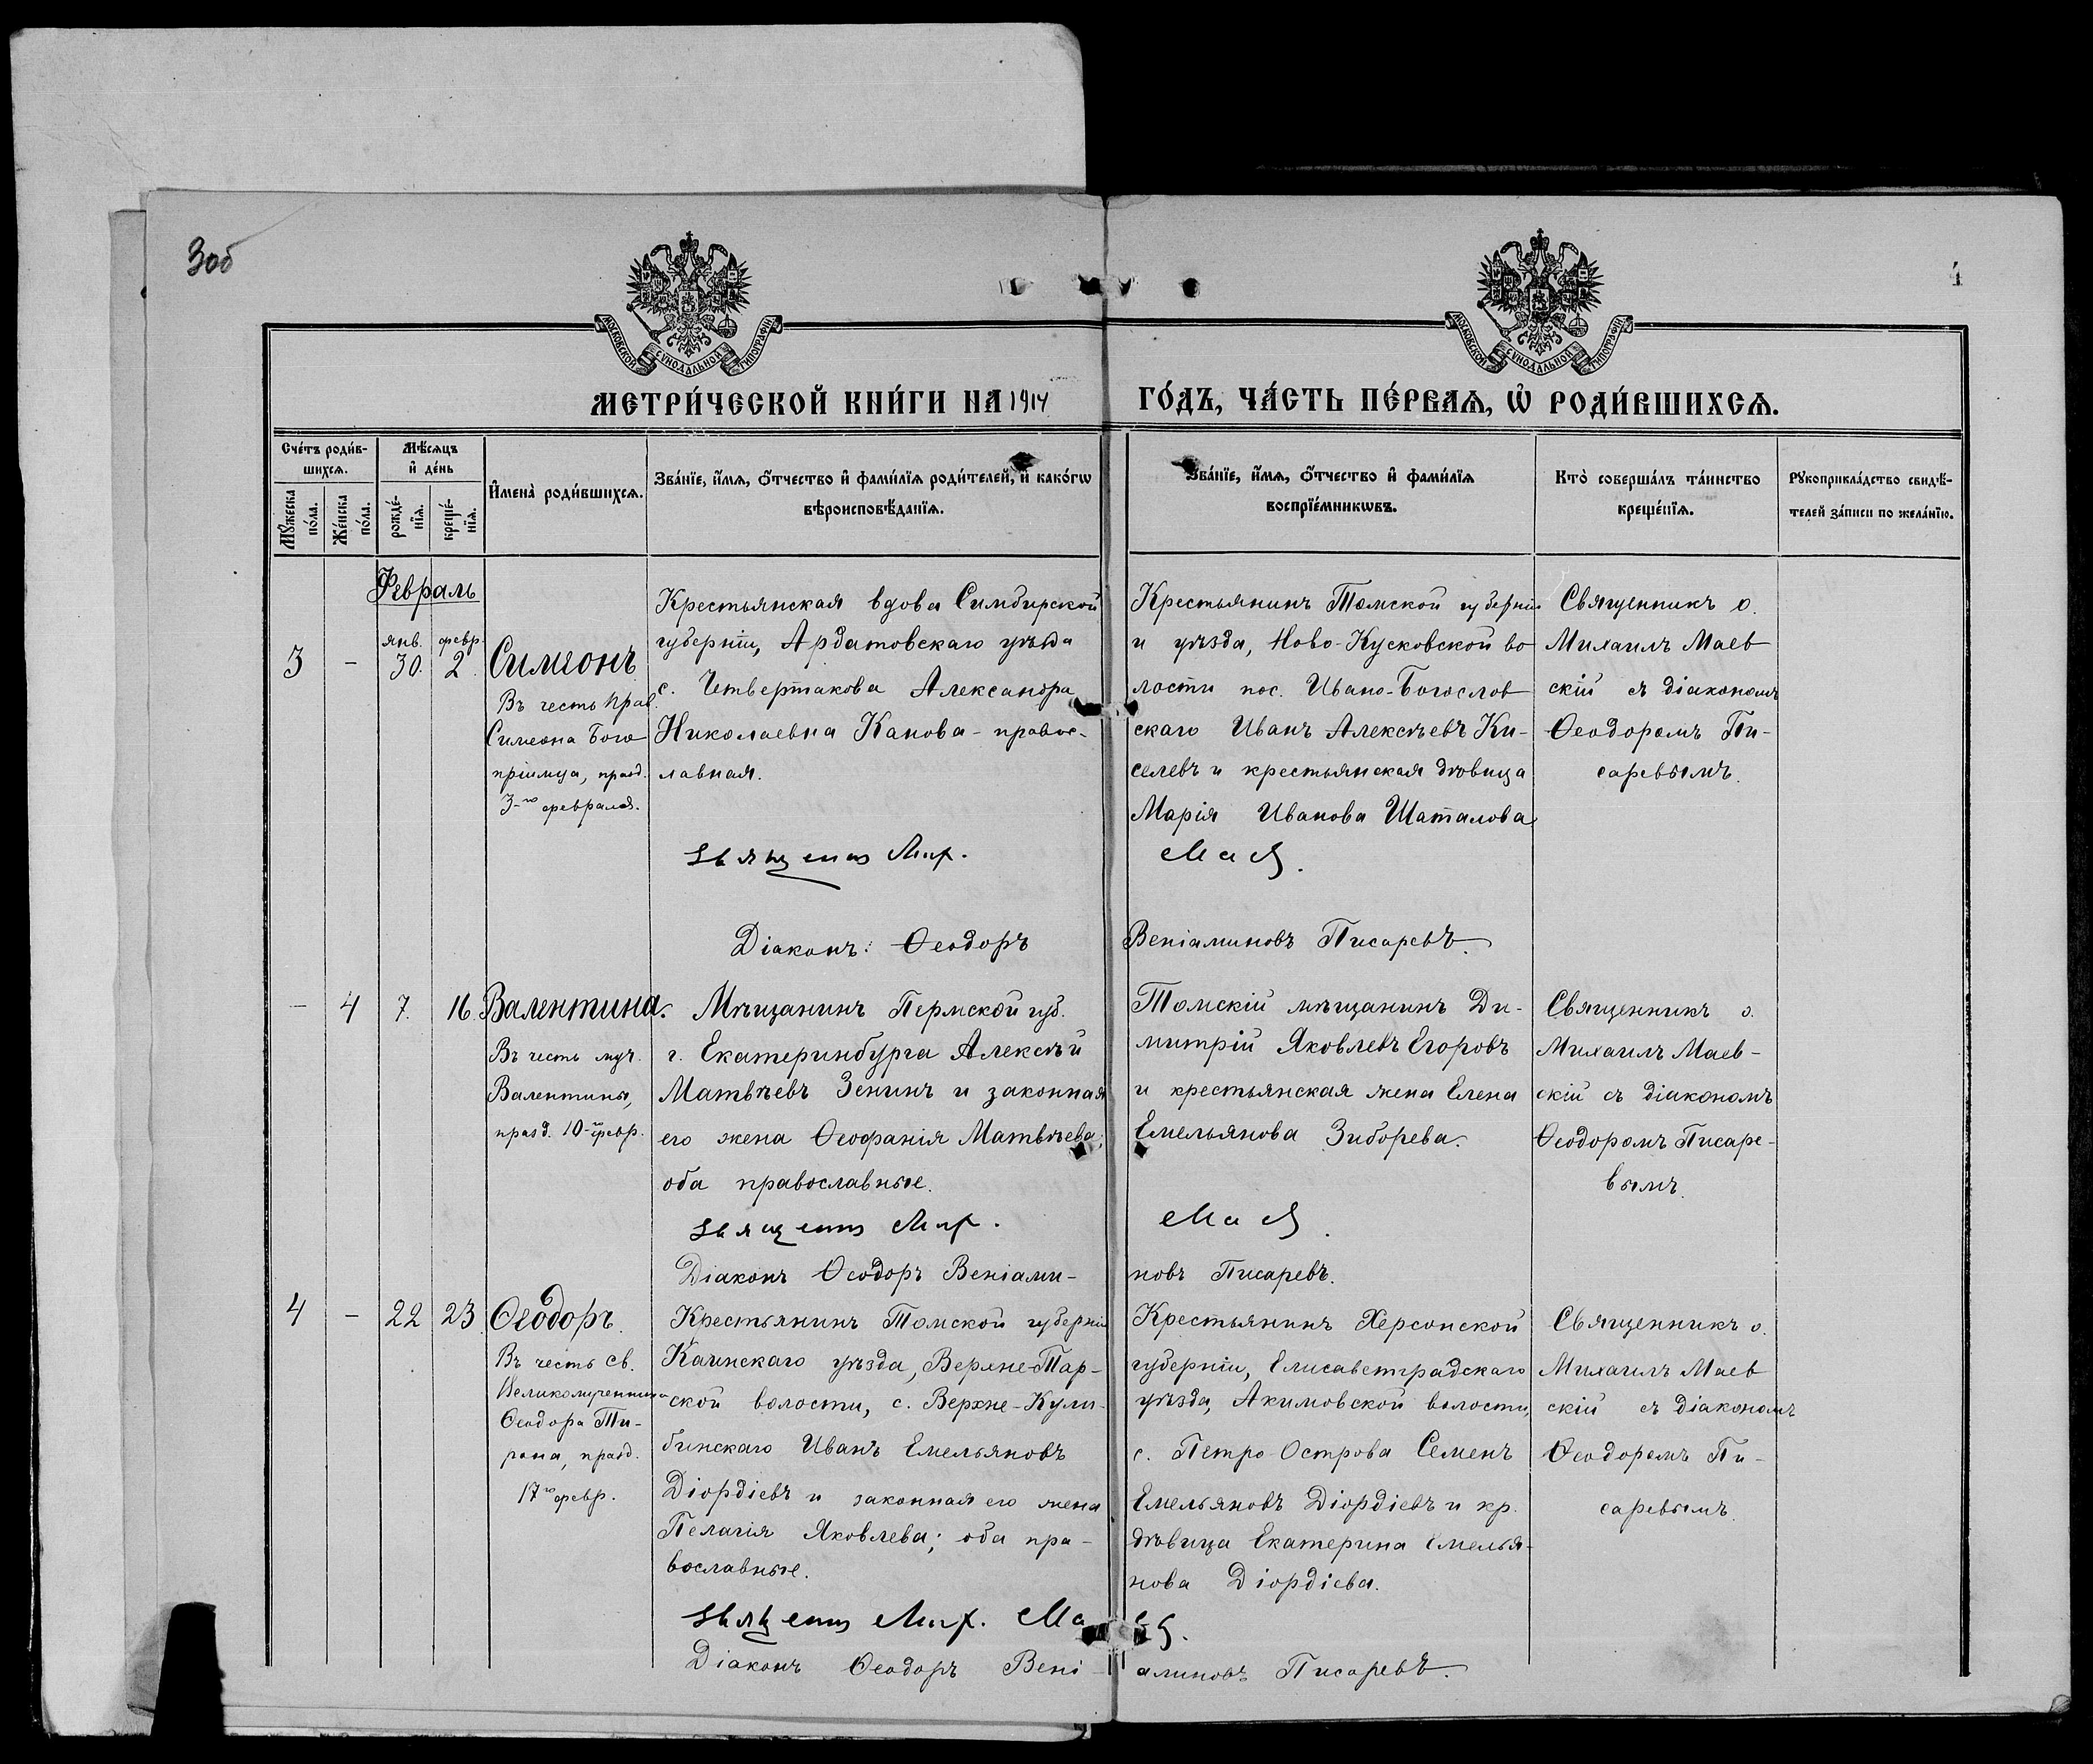 3об
4
МОСКОВСКОЙ СУНОДАЛЬНОЙ ТИПОГРАФІИ
МОСКОВСКОЙ СУНОДАЛЬНОЙ ТИПОГРАФІИ
МЕТРИ́ЧЕСКОЙ КНИ́ГИ НА 1914 ГО́ДЪ, ЧА́СТЬ ПЕ́РВАѦ, Ѡ҆ РОДИ́ВШИХСѦ.
Сче́тъ роди́в-
шихсѧ.
Мꙋ́жеска по́ла.
Же́нска по́ла.
Мѣ́сѧцъ
и҆ де́нь
рожде́-
нїѧ.
креще́-
нїѧ.
И҆мена̀ роди́вшихсѧ.
Зва́нїе, и҆́мѧ, ѻ҆́тчество и҆ фами́лїѧ роди́телей, и҆ како́гѡ
вѣроисповѣ́данїѧ.
Зва́нїе, и҆́мѧ, ѻ҆́тчество и҆ фами́лїѧ
воспрїе́мникѡвъ.
Кто̀ соверша́лъ та́инство
креще́нїѧ.
Рꙋкоприкла́дство свидѣ́-
телей за́писи по жела́нїю.
Февраль
3
-
янв.
30.
февр.
2
Симеонъ
Въ честь прав.
Симеона Бого
пріимца, празд.
3-го февраля.
Крестьянская вдова Симбирской
губерніи, Ардатовскаго уѣзда
с. Четвертакова Александра
Николаевна Канова - правос-
лавная.
Крестьянинъ Томской губерніи
и уѣзда, Ново-Кусковской во
лости пос. Ивано-Богослов
скаго Иванъ Алексѣевъ Ки-
селевъ и крестьянская дѣвица
Марія Иванова Шаталова
Священникъ о.
Михаилъ Маев
скій съ діакономъ
Ѳеодоромъ Пи-
саревымъ.
Діаконъ: Ѳеодоръ Веніаминовъ Писаревъ.
-
4
7.
16.
Валентина.
Въ честь муч.
Валентины,
празд. 10-го февр.
Мѣщанинъ Пермской губ.
г. Екатеринбурга Алексѣй
Матвѣевъ Зенинъ и законная
его жена Ѳеофанія Матвѣева;
оба православные.
Томскій мѣщанинъ Ди-
митрій Яковлевъ Егоровъ
и крестьянская жена Елена
Емельянова Зиборева.
Священникъ о.
Михаилъ Маев-
скій съ діакономъ
Ѳеодоромъ Писаре-
вымъ.
Діаконъ Ѳеодоръ Веніами-
новъ Писаревъ.
4
-
22
23
Ѳеодоръ.
Въ честь св.
Великомученика
Ѳеодора Ти-
рона, празд.
17го февр.
Крестьянинъ Томской губерніи
Каинскаго уѣзда, Верхне-Тар-
ской волости, с. Верхне-Кули-
бинскаго Иванъ Емельяновъ
Діордіевъ и законная его жена
Пелагія Яковлева; оба пра-
вославные.
Крестьянинъ Херсонской
губерніи, Елисаветградскаго
уѣзда, Акимовской волости,
с. Петро Острова Семенъ
Емельяновъ Діордіевъ и кр.
дѣвица Екатерина Емелья-
нова Діордіева.
Священникъ о.
Михаилъ Маев
скій съ діакономъ
Ѳеодоромъ Пи-
саревымъ.
Діаконъ Ѳеодоръ Вені-
аминовъ Писаревъ.